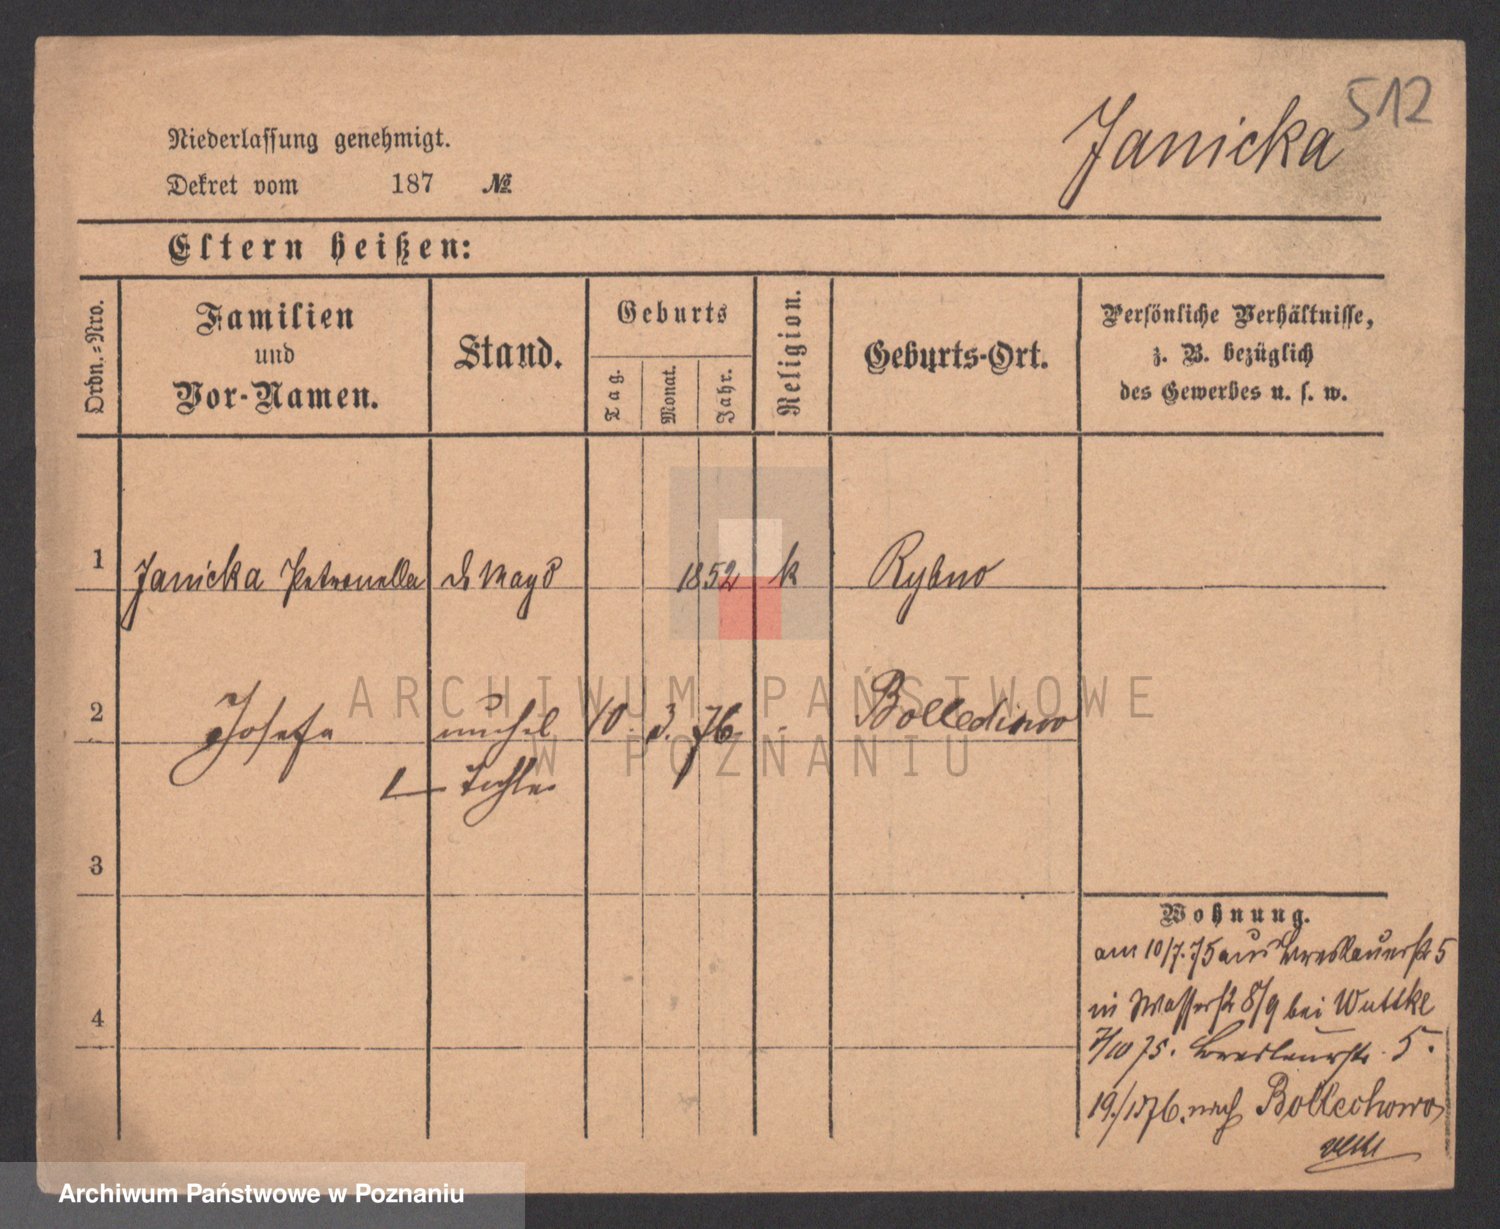 512
Janicka
Niederlassung genehmigt.
Dekret vom 187 №
Eltern heißen:
Ordn.-Nro.
Familien
und
Vor-Namen.
Stand.
Geburts
Tag.
Monat.
Jahr.
Religion.
Geburts-Ort.
Persönliche Verhältnisse,
z. B. bezüglich
des Gewerbes u. s. w.
1 Janicka Petronella d. Magd 1852 k Rybno
2 Josefa unehel 10. 3. 76. Bolledinow
Tochter
3
4
Wohnung.
am 10/7. 75 aus Breslauerstr 5
in Wasserstr 8/9 bei Wuttke
7/10 75. Breslauerstr. 5.
19./1 76. nach Bollechowo
ARCHIWUM PAŃSTWOWE
W POZNANIU
Archiwum Państwowe w Poznaniu